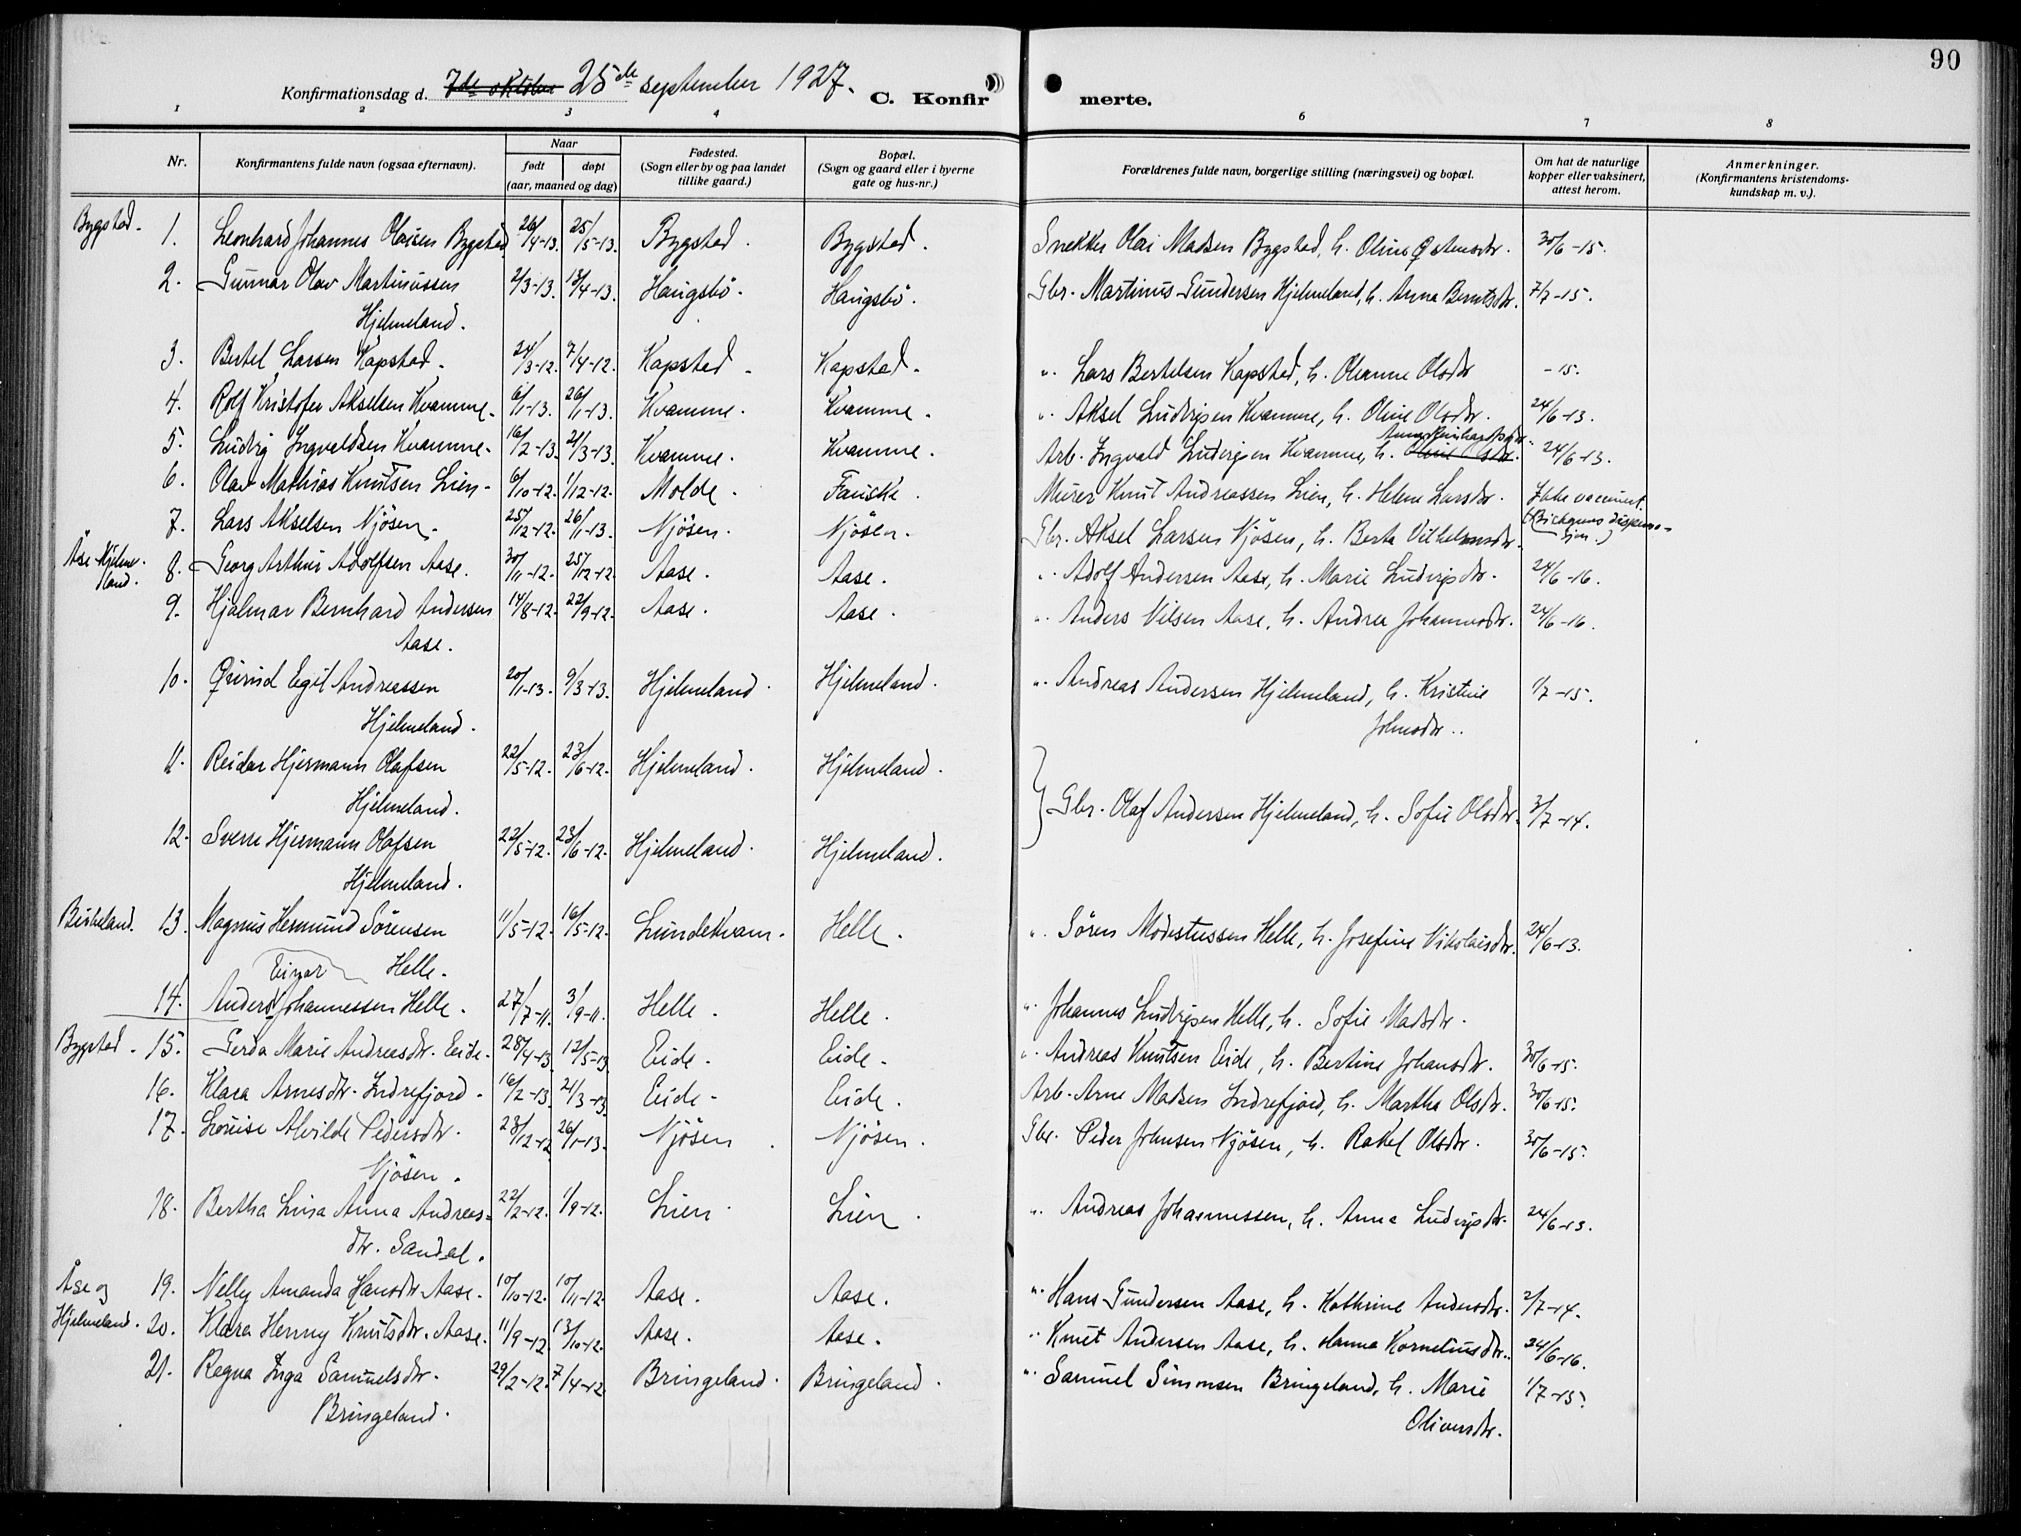 90
Konfirmationsdag d. 7de oktober 25de september 1927. C. Konfirmerte.
1 2 3 4 6 7 8
Nr. Konfirmantens fulde navn (ogsaa efternavn). Naar født døpt (aar, maaned og dag) Fødested. (Sogn eller by og paa landet tillike gaard.) Bopæl. (Sogn og gaard eller i byerne gate og hus-nr.) Forældrenes fulde navn, borgerlige stilling (næringsvei) og bopæl. Om hat de naturlige kopper eller vaksinert, attest herom. Anmerkninger. (Konfirmantens kristendoms-kundskap m. v.).
Bygstad. 1. Leonhard Johannes Olaisen Bygstad 26/4-13. 25/5-13. Bygstad. Bygstad. Snekker Olai Madsen Bygstad, h. Oline Østensdtr. 30/6-15.
2. Gunnar Olav Martinussen 2/3-13. 13/4-13. Haugsbö. Haugsbö. Gbr. Martinus Gundersen Hjelmeland, h. Anna Berntsdtr. 7/7-15.
Hjelmeland.
3. Bertel Larsen Kapstad. 24/3-12. 7/4-12. Kapstad. Kapstad. " Lars Bertelsen Kapstad, h. Oleanne Olsdtr -15.
4. Rolf Kristofer Akselsen Kvamme. 6/1-13. 26/1-13. Kvamme. Kvamme. " Aksel Ludvigsen Kvamme, h. Oline Olsdtr. 24/6-13.
5. Ludvig Ingvaldsen Kvamme. 16/2-13. 21/3-13. Kvamme. Kvamme. Arb. Ingvald Ludvigsen Kvamme, h. Oline Olsdtr. 24/6-13.
6. Olav Mathias Knutsen Lien. 6/10-12. 1/12-12. Molde. Fauske. Murer Knut Andreassen Lien, h. Helene Larsdtr. Ikke vaccinert.
7. Lars Akselsen Njösen. 25/12-12. 26/1-13. Njösen. Njösen. Gbr. Aksel Larsen Njösen, h. Berta Vilhelmsdtr.
Åse Hjelmeland. 8. Georg Arthur Adolfsen Aase. 30/11-12. 25/12-12. Aase. Aase. " Adolf Andersen Aase, h. Marie Ludvigsdtr. 24/6-16.
9. Hjalmar Bernhard Andersen 14/8-12. 22/9-12. Aase. Aase. " Anders Nilsen Aase, h. Andrea Johannesdtr. 24/6-16.
Aase.
10. Öivind Egil Andreassen 20/1-13. 9/3-13. Hjelmeland. Hjelmeland. " Andreas Andersen Hjelmeland, h. Kristine 1/7-15.
Hjelmeland. Johnsdtr.
11. Reidar Hjermann Olafsen 22/5-12. 23/6-12. Hjelmeland. Hjelmeland.
Hjelmeland. Gbr. Olaf Andersen Hjelmeland, h. Sofie Olsdtr. 3/7-14.
12. Sverre Hjermann Olafsen 22/5-12. 23/6-12. Hjelmeland. Hjelmeland.
Hjelmeland.
Birkeland. 13. Magnus Hermund Sörensen 11/5-12. 16/5-12. Lundekvam. Helle. " Sören Modestussen Helle, h. Josefine Nikolaisdtr. 24/6-13.
Einar Helle.
14. Anders Johannessen Helle. 27/7-11. 3/9-11. Helle. Helle. " Johannes Ludvigsen Helle, h. Sofie Madsdtr.
Bygstad. 15. Gerda Marie Andreasdtr. Eide. 28/4-13 12/5-13 Eide. Eide. " Andreas Knutsen Eide, h. Bertine Johansdtr. 30/6-15.
16. Klara Arnesdtr. Indrefjord. 16/2-13. 21/3-13. Eide. Eide. Arb. Arne Madsen Indrefjord, h. Martha Olsdtr. 30/6-15.
17. Louise Alvilde Pedersdtr. 28/12-12 26/1-13. Njösen. Njösen. Gbr. Peder Johnsen Njösen, h. Rakel Olsdtr. 30/6-15.
Njösen.
18. Bertha Lina Anna Andreas- 22/2-12. 1/9-12. Lien. Lien. " Andreas Johannessen, h. Anna Ludvigsdtr. 24/6-13.
dtr. Sandal.
Åse og 19. Nelly Amanda Hansdtr Aase. 10/10-12. 10/11-12. Aase. Aase. " Hans Gundersen Aase, h. Kathrine Andersdtr. 2/7-14.
Hjelmeland. 20. Klara Henny Knutsdtr. Aase. 11/9-12. 13/10-12. Aase. Aase. " Knut Andersen Aase, h. Hanna Korneliusdtr. 24/6-16.
21. Ragna Inga Samuelsdtr. 29/2-12. 7/4-12 Bringeland. Bringeland. " Samuel Simonsen Bringeland, h. Marie 1/7-15.
Bringeland. Oliversdtr.